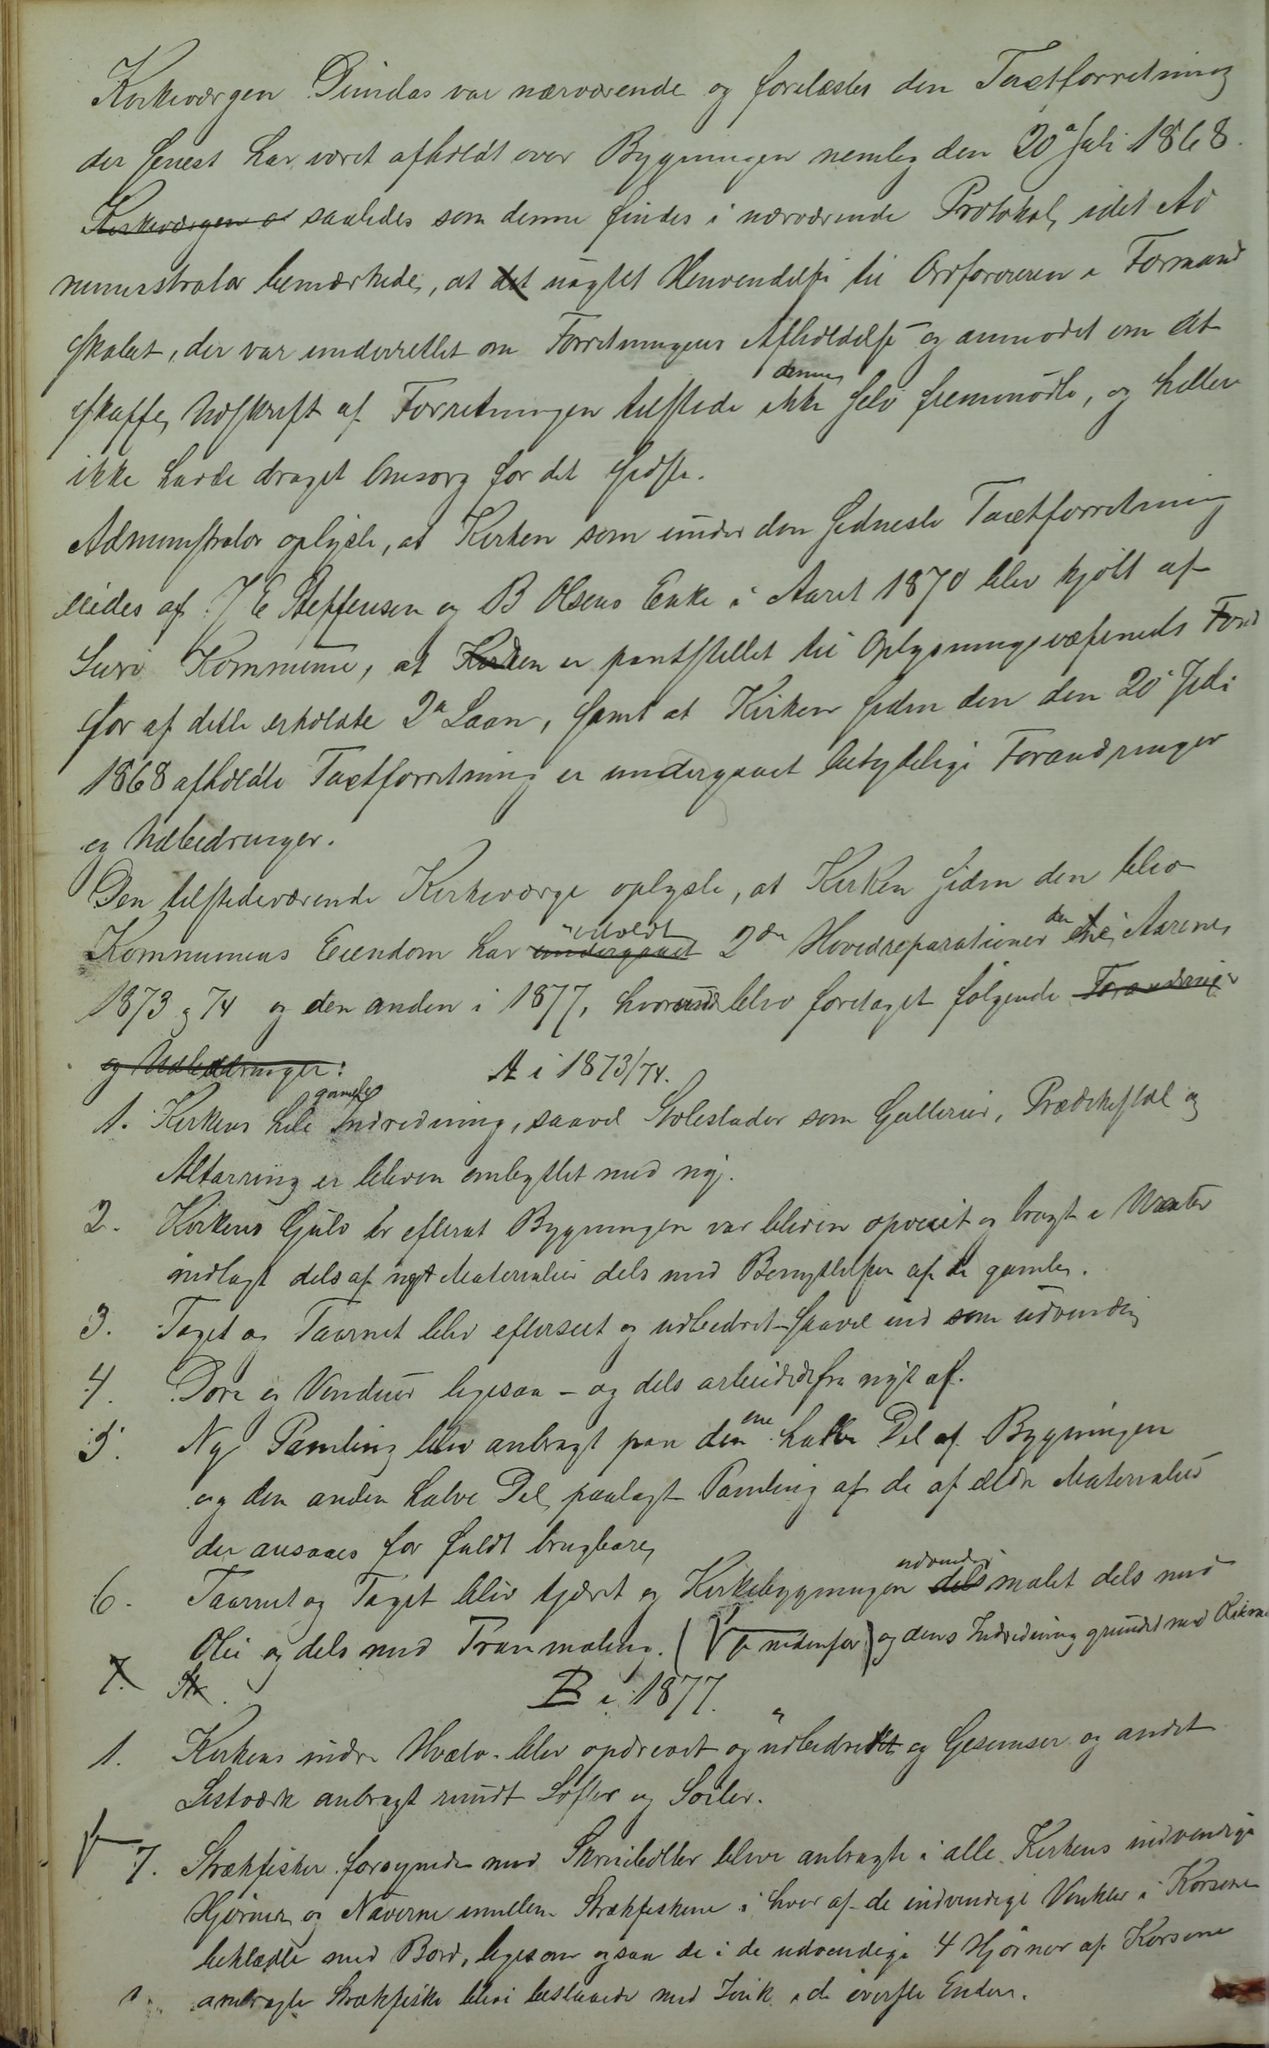 Kirkeværgen Dundas var nærværende og forelæstes den Taxtforretning
der senest har været afholdt over Bygningen nemlig den 20de Juli 1868.
Kirkeværgen saaledes som denne findes i nærværende Protokol, idet Ad
ministrator bemærkede, at det uagtet Henvendelse til Ordføreren i Formand
skabet, der var underrettet om Forretningens Afholdelse og anmodet om at
skaffe Udskrift af Forretningen tilstede denne ikke selv fremmødte, og heller
ikke havde draget Omsorg for det sidste.
Administrator oplyste, at Kirken som under den sidneste Taxtforretning
eiedes af J E Steffensen og B Olsens Enke i Aaret 1870 blev kjøbt af
Lurø Kommune, at Kirken er pantstillet til Oplysningsvæsenets Fond
for af dette erholdte 2de Laan, samt at Kirken siden den den 20de Juli
1868 afholdte Taxtforretning er undergaaet betydelige Forandringer
og Udbedringer.
Den tilstedeværende Kirkeværge oplyste, at Kirken siden den blev
Kommunens Eiendom har undergaaet udholdt 2de Hovedreparationer den ene i Aarene
1873 og 74 og den anden i 1877, hvorunder blev foretaget følgende Forandringer
og Udbedringer:
A i 1873/74.
1. Kirkens hele gamle Indredning, saavel Stolestader som Gallerier, Prædikestol og
Altarring er bleven ombyttet med ny.
2. Kirkens Gulv er efterat Bygningen var bleven opveiet og bragt i Vater
indlagt dels af nyt Materialier dels med Benyttelsen af de gamle.
3. Taget og Taarnet blev efterseet og udbedret saavel ind som udvendig
4. Døre og Vinduer ligesaa - og dels arbeidede fra nyt af.
5. Ny Paneling blev anbragt paa den ene halve Del af Bygningen
og den anden halve Del paalagt Paneling af de af ældre Materialier
der ansaaes for fuldt brugbare,
6. Taarnet og Taget blev tjæret og Kirkebygningen udvendig dels malet dels med
Olie og dels med Tranmaling. (se nedenfor) og dens Indredning grundet med
7. Str
B i 1877.
1. Kirkens indre Hvælv blev opdrevet og udbedret og Gesimser og andet
Listværk anbragt rundt Lofter og Søiler.
7. Strækfisker forsynede med Skruebolter bleve anbragte i alle Kirkens indvendige
Hjørner og Naverne imellem Strækfiskene i hver af de indvendige Vinkler i Korsene
beklædte med Bord, ligesom ogsaa de i de udvendige 4 Hjørner af Korsene
anbragte Strækfiske blevi beslaaede med Zink i de øverste Ender.